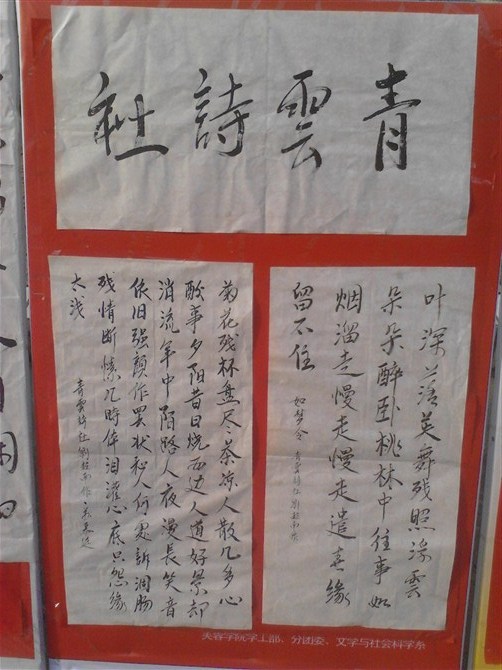 青雲詩社
叶深落英舞残照染雲
朵朵醉卧桃林中往事如
烟溜走慢走慢走遣喜缘
留不住
如梦令 青雲詩社劉
菊花残杯盘尽茶凉人散几多心
酸事夕阳昔日烧西边人道好景却
消流年中陌路人夜漫長笑音
依旧强颜作罢状秘人何处訴润肠
残情断愫几時伴泪灌心底只怨缘
太浅
青雲詩社劉
芙蓉学院学工部、分团委、文学与社会科学系